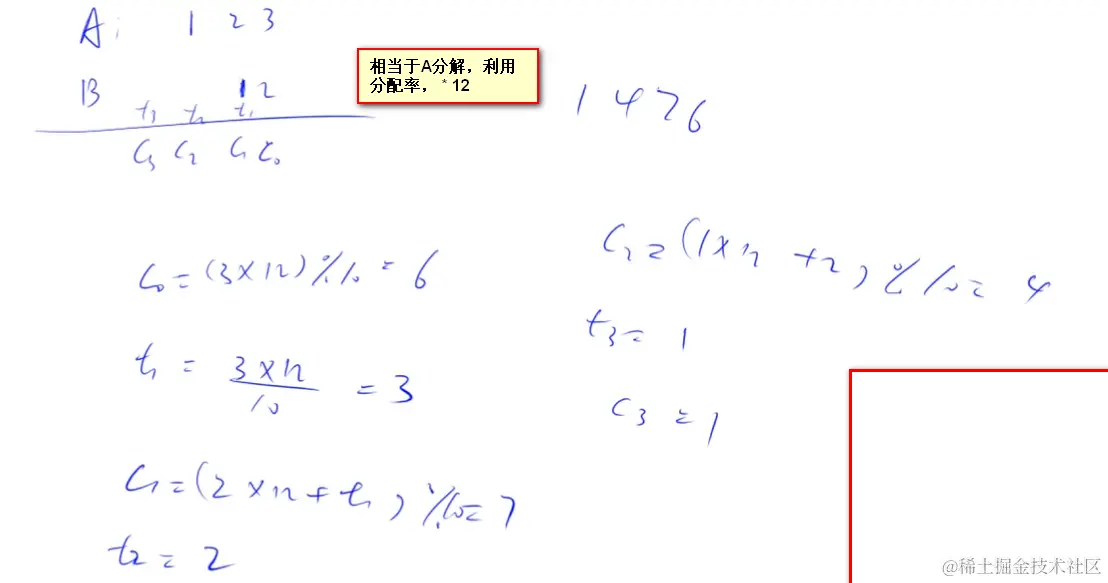 A: 1 2 3
B 12
t3 t2 t1
C3 C2 C1 C0
相当于A分解，利用
分配率，* 12
1476
C0 = (3×12)%10 = 6
t1 = 3×12/10 = 3
C1 = (2×12+t1)%10= 7
t2 = 2
C2 = (1×12+2)%10= 4
t3 = 1
C3 = 1
@稀土掘金技术社区